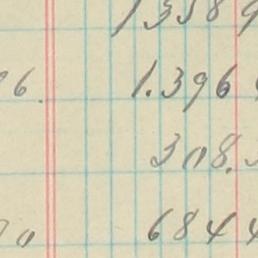 1358
96. 1.396
308.
70 6844